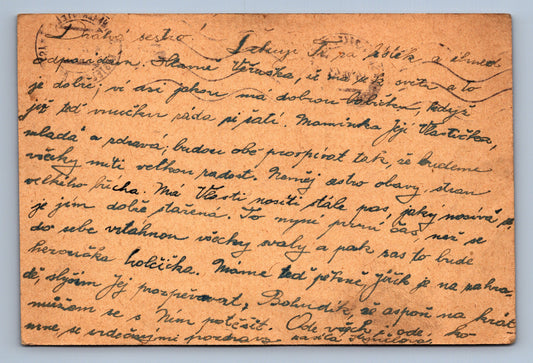 Drahá sestro! Děkuji Ti za lístek a ihned
odpovídám. Hlavně Věruška, že má se k světu a to
je dobře, ví dsi jakou má dobrou babičku, když
již teď vnučku ráda si šatí. Maminka Její Vlastička,
mladá a zdravá, budou obě prospívat tak, že budeme
všecky míti velkou radost. Neměj sestro obavy, stran
velkého břicha. Má Vlasti nositi stále pas, jaký nosívá se,
je jím dobře stažená. To nyní první čas, než se
do sebe vtáhnou všecky svaly a pak zas to bude
heroučka holčička. Máme teď pěkně, Jářík je na zahra-
dě, slyším Jej prozpěvovat, Bohudík, že aspoň na krát
můžem se s Ním potěšit. Ode všech, ode
mne, se srdečnými pozdravy